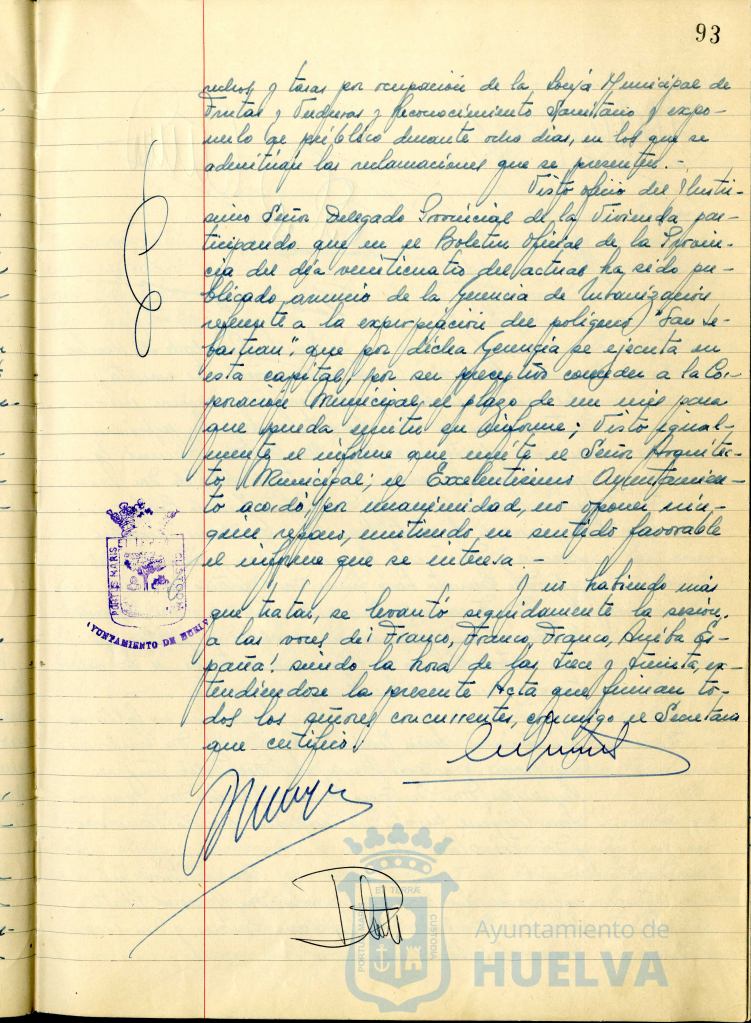 93
rechos y tasas por ocupación de la Lonja Municipal de
Frutas y Verduras y Reconocimiento Sanitario y expo-
nerlo al público durante ocho días, en los que se
admitirán las reclamaciones que se presenten.-
Visto oficio del Ilustrí-
simo Señor Delegado Provincial de la Vivienda par-
ticipando que en el Boletín Oficial de la Provin-
cia del día veinticuatro del actual ha sido pu-
blicado anuncio de la Gerencia de Urbanización
referente a la expropiación del polígono "San Se-
bastián", que por dicha Gerencia se ejecuta en
esta capital, por ser preceptivo conceder a la Cor-
poración Municipal, el plazo de un mes para
que pueda emitir su informe; Visto igual-
mente el informe que emite el Señor Arquitec-
to Municipal; el Excelentísimo Ayuntamien-
to acordó, por unanimidad, no oponer nin-
gún reparo, emitiendo, en sentido favorable
el informe que se interesa.-
Y no habiendo más
que tratar, se levantó seguidamente la sesión,
a las voces de ¡Franco, Franco, Franco, Arriba Es-
paña! siendo la hora de las trece y treinta, ex-
tendiéndose la presente Acta que firman to-
dos los señores concurrentes, conmigo el Secretario
que certifico.
PORTUS MARIS
CUSTODIA
AYUNTAMIENTO DE HUELVA
ET TERRÆ
PORTUS MARIS
CUSTODIA
Ayuntamiento de
HUELVA